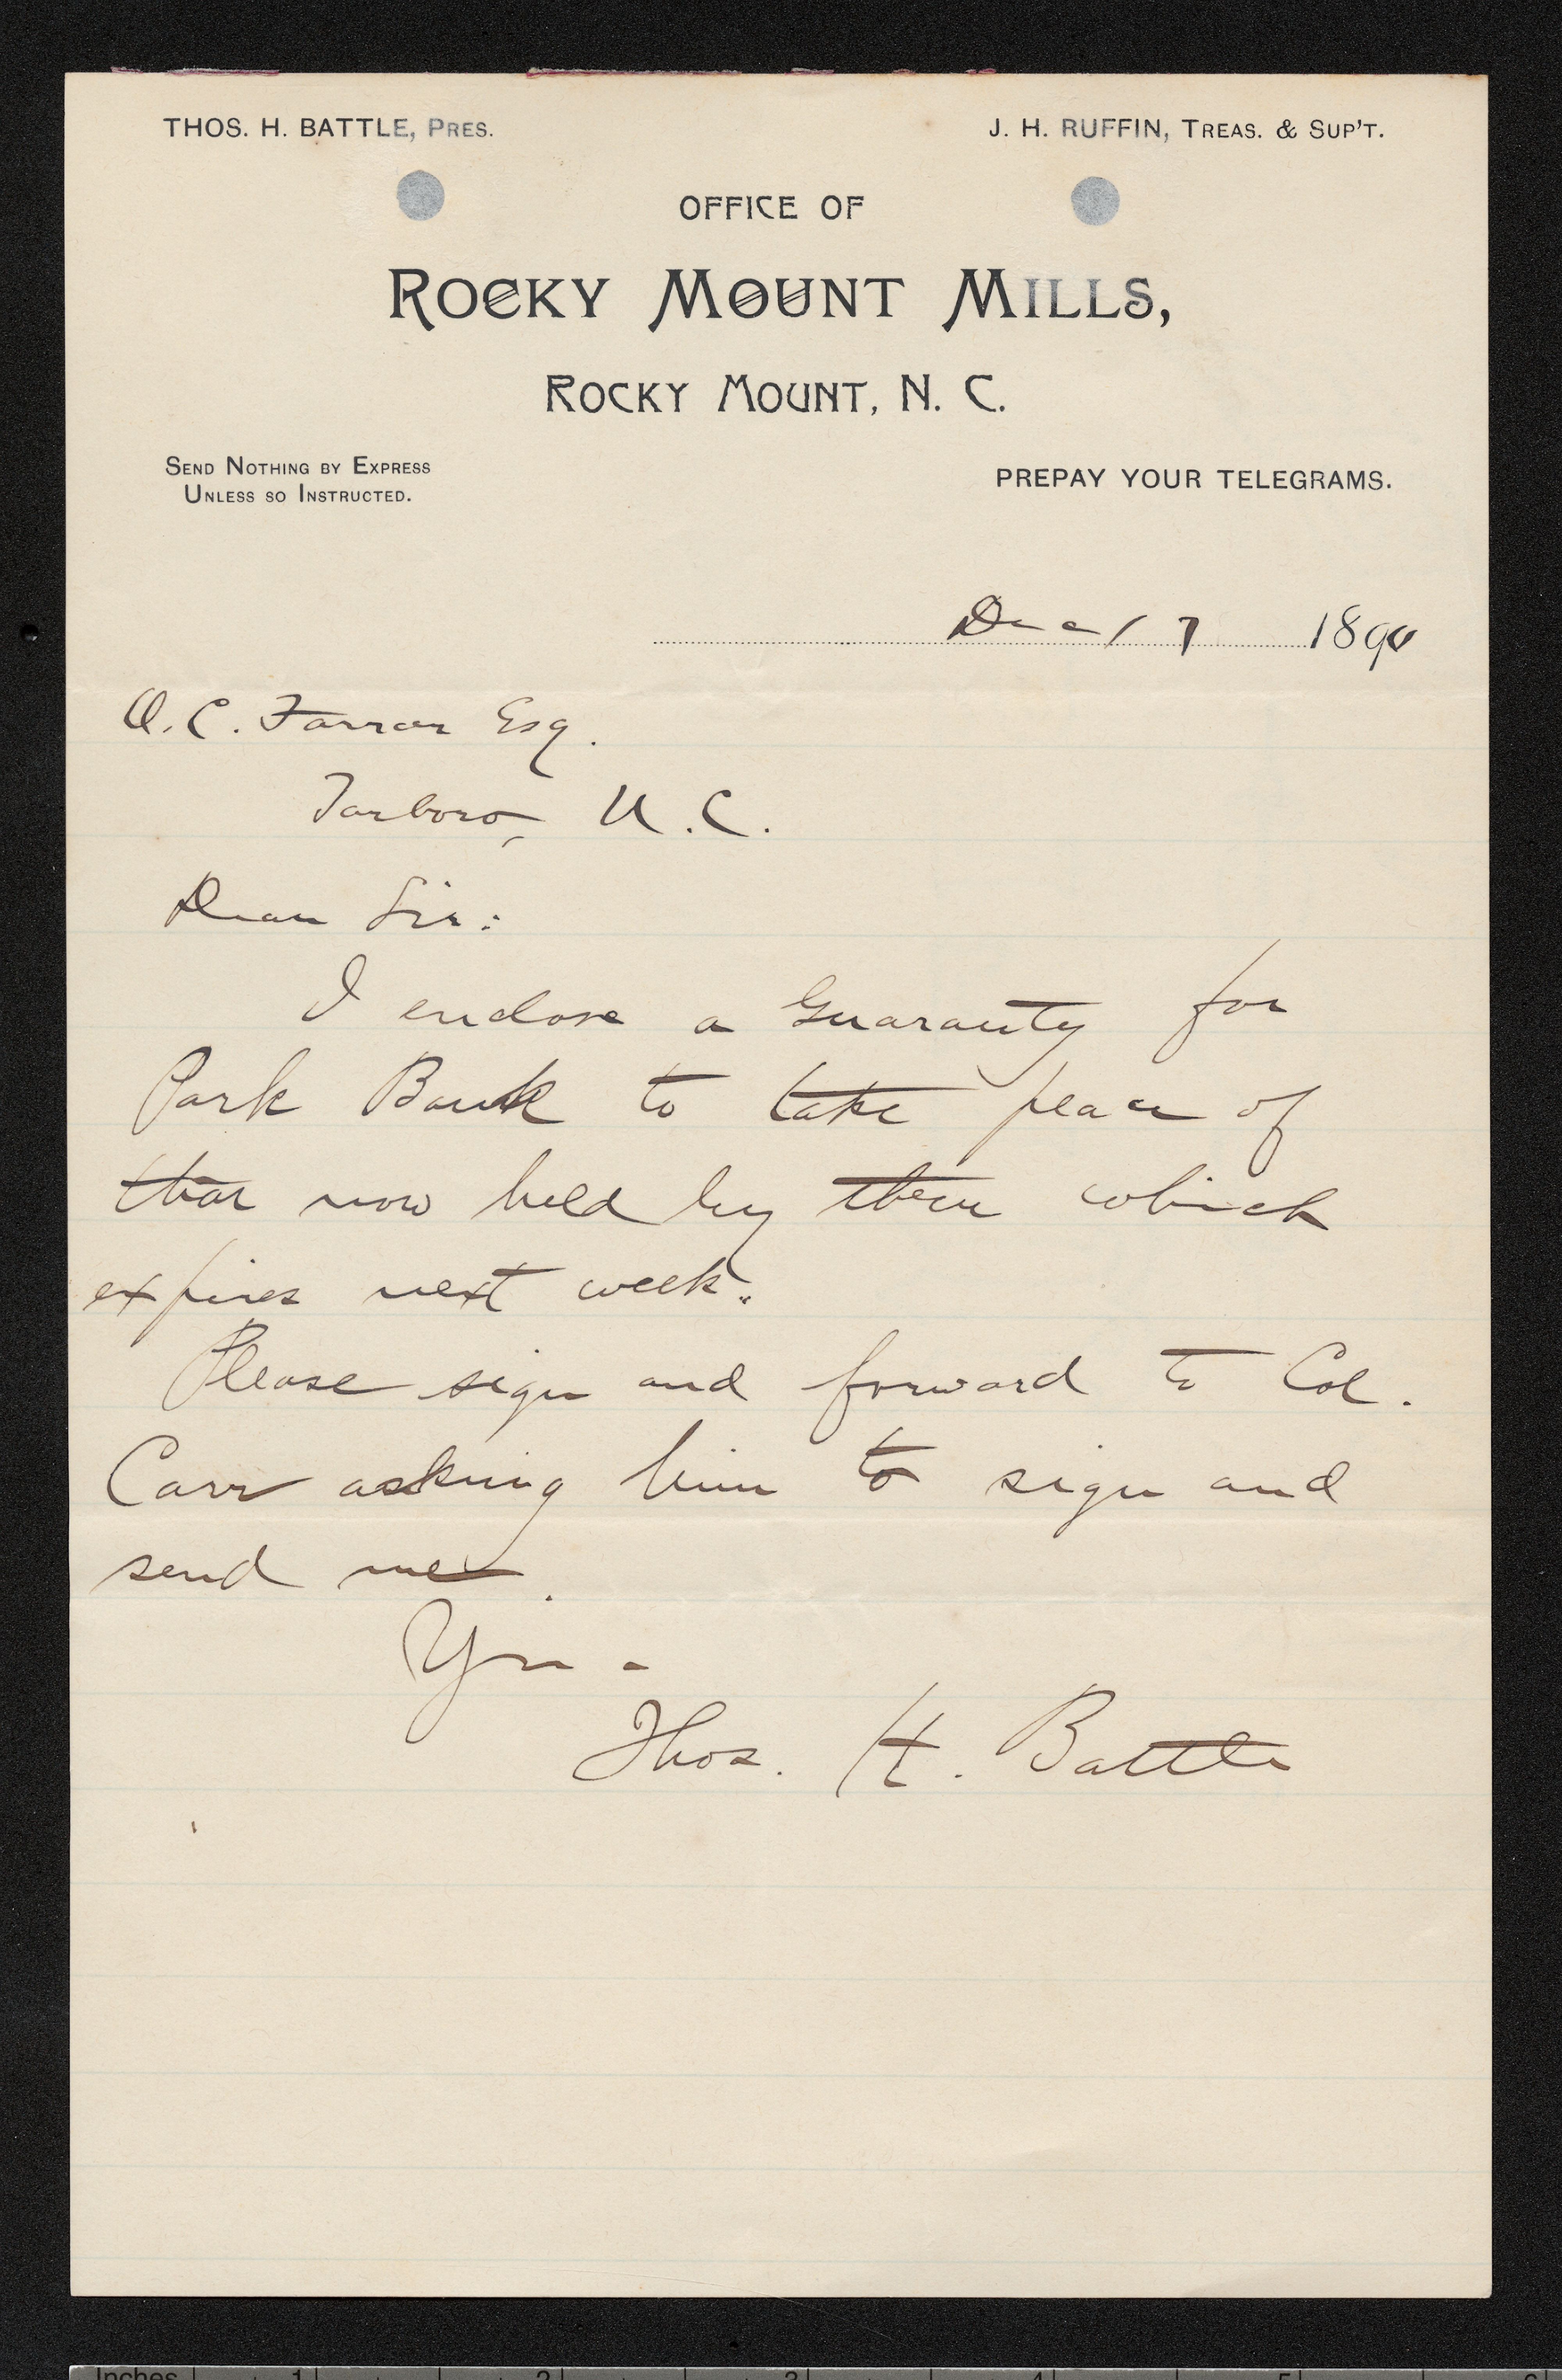 THOS. H. BATTLE, PRES. J. H. RUFFIN, TREAS. & SUP'T.
OFFICE OF
ROCKY MOUNT MILLS,
ROCKY MOUNT, N. C.
SEND NOTHING BY EXPRESS
UNLESS SO INSTRUCTED.
PREPAY YOUR TELEGRAMS.
Dec 17 1890
O. C. Farrar Esq.
Tarboro, N.C.
Dear Sir:
I enclose a Guaranty for
Park Bank to take place of
that now held by them which
expires next week.
Please sign and forward to Col.
Carr asking him to sign and
send me.
Yrs -
Thos. H. Battle
Inches 1 2 3 4 5 6